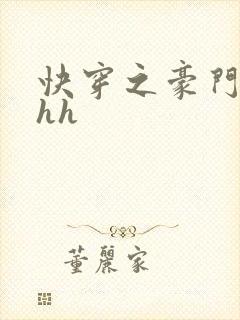 快穿之豪門
hh
董麗家